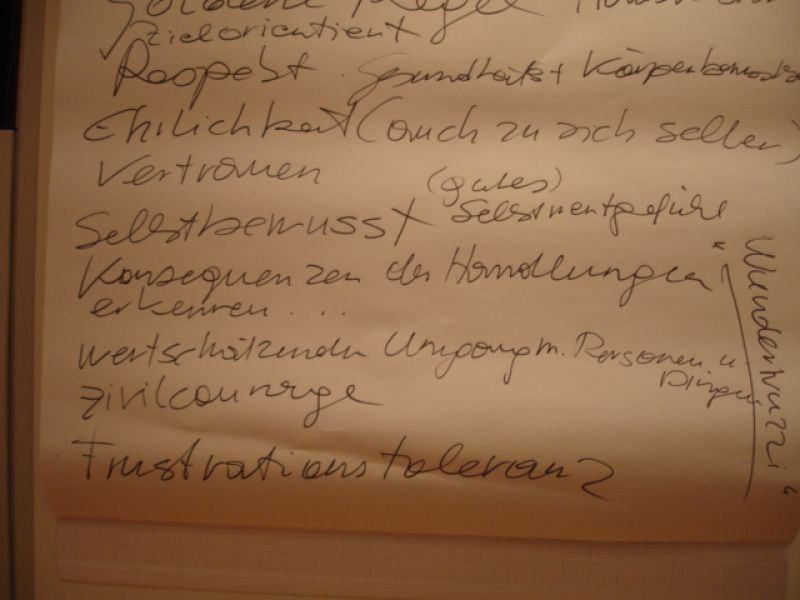 goldene Regel
zielorientiert
Respekt Gesundheits + Körperbewusst
Ehrlichkeit (auch zu sich selber)
Vertrauen
(gutes)
Selbstbewusst Selbstwertgefühl
Konsequenzen der Handlungen
erkennen . . .
wertschätzender Umgang m. Personen u.
Dingen
Zivilcourage
Frustrationstoleranz
"Wunderwuzzi"